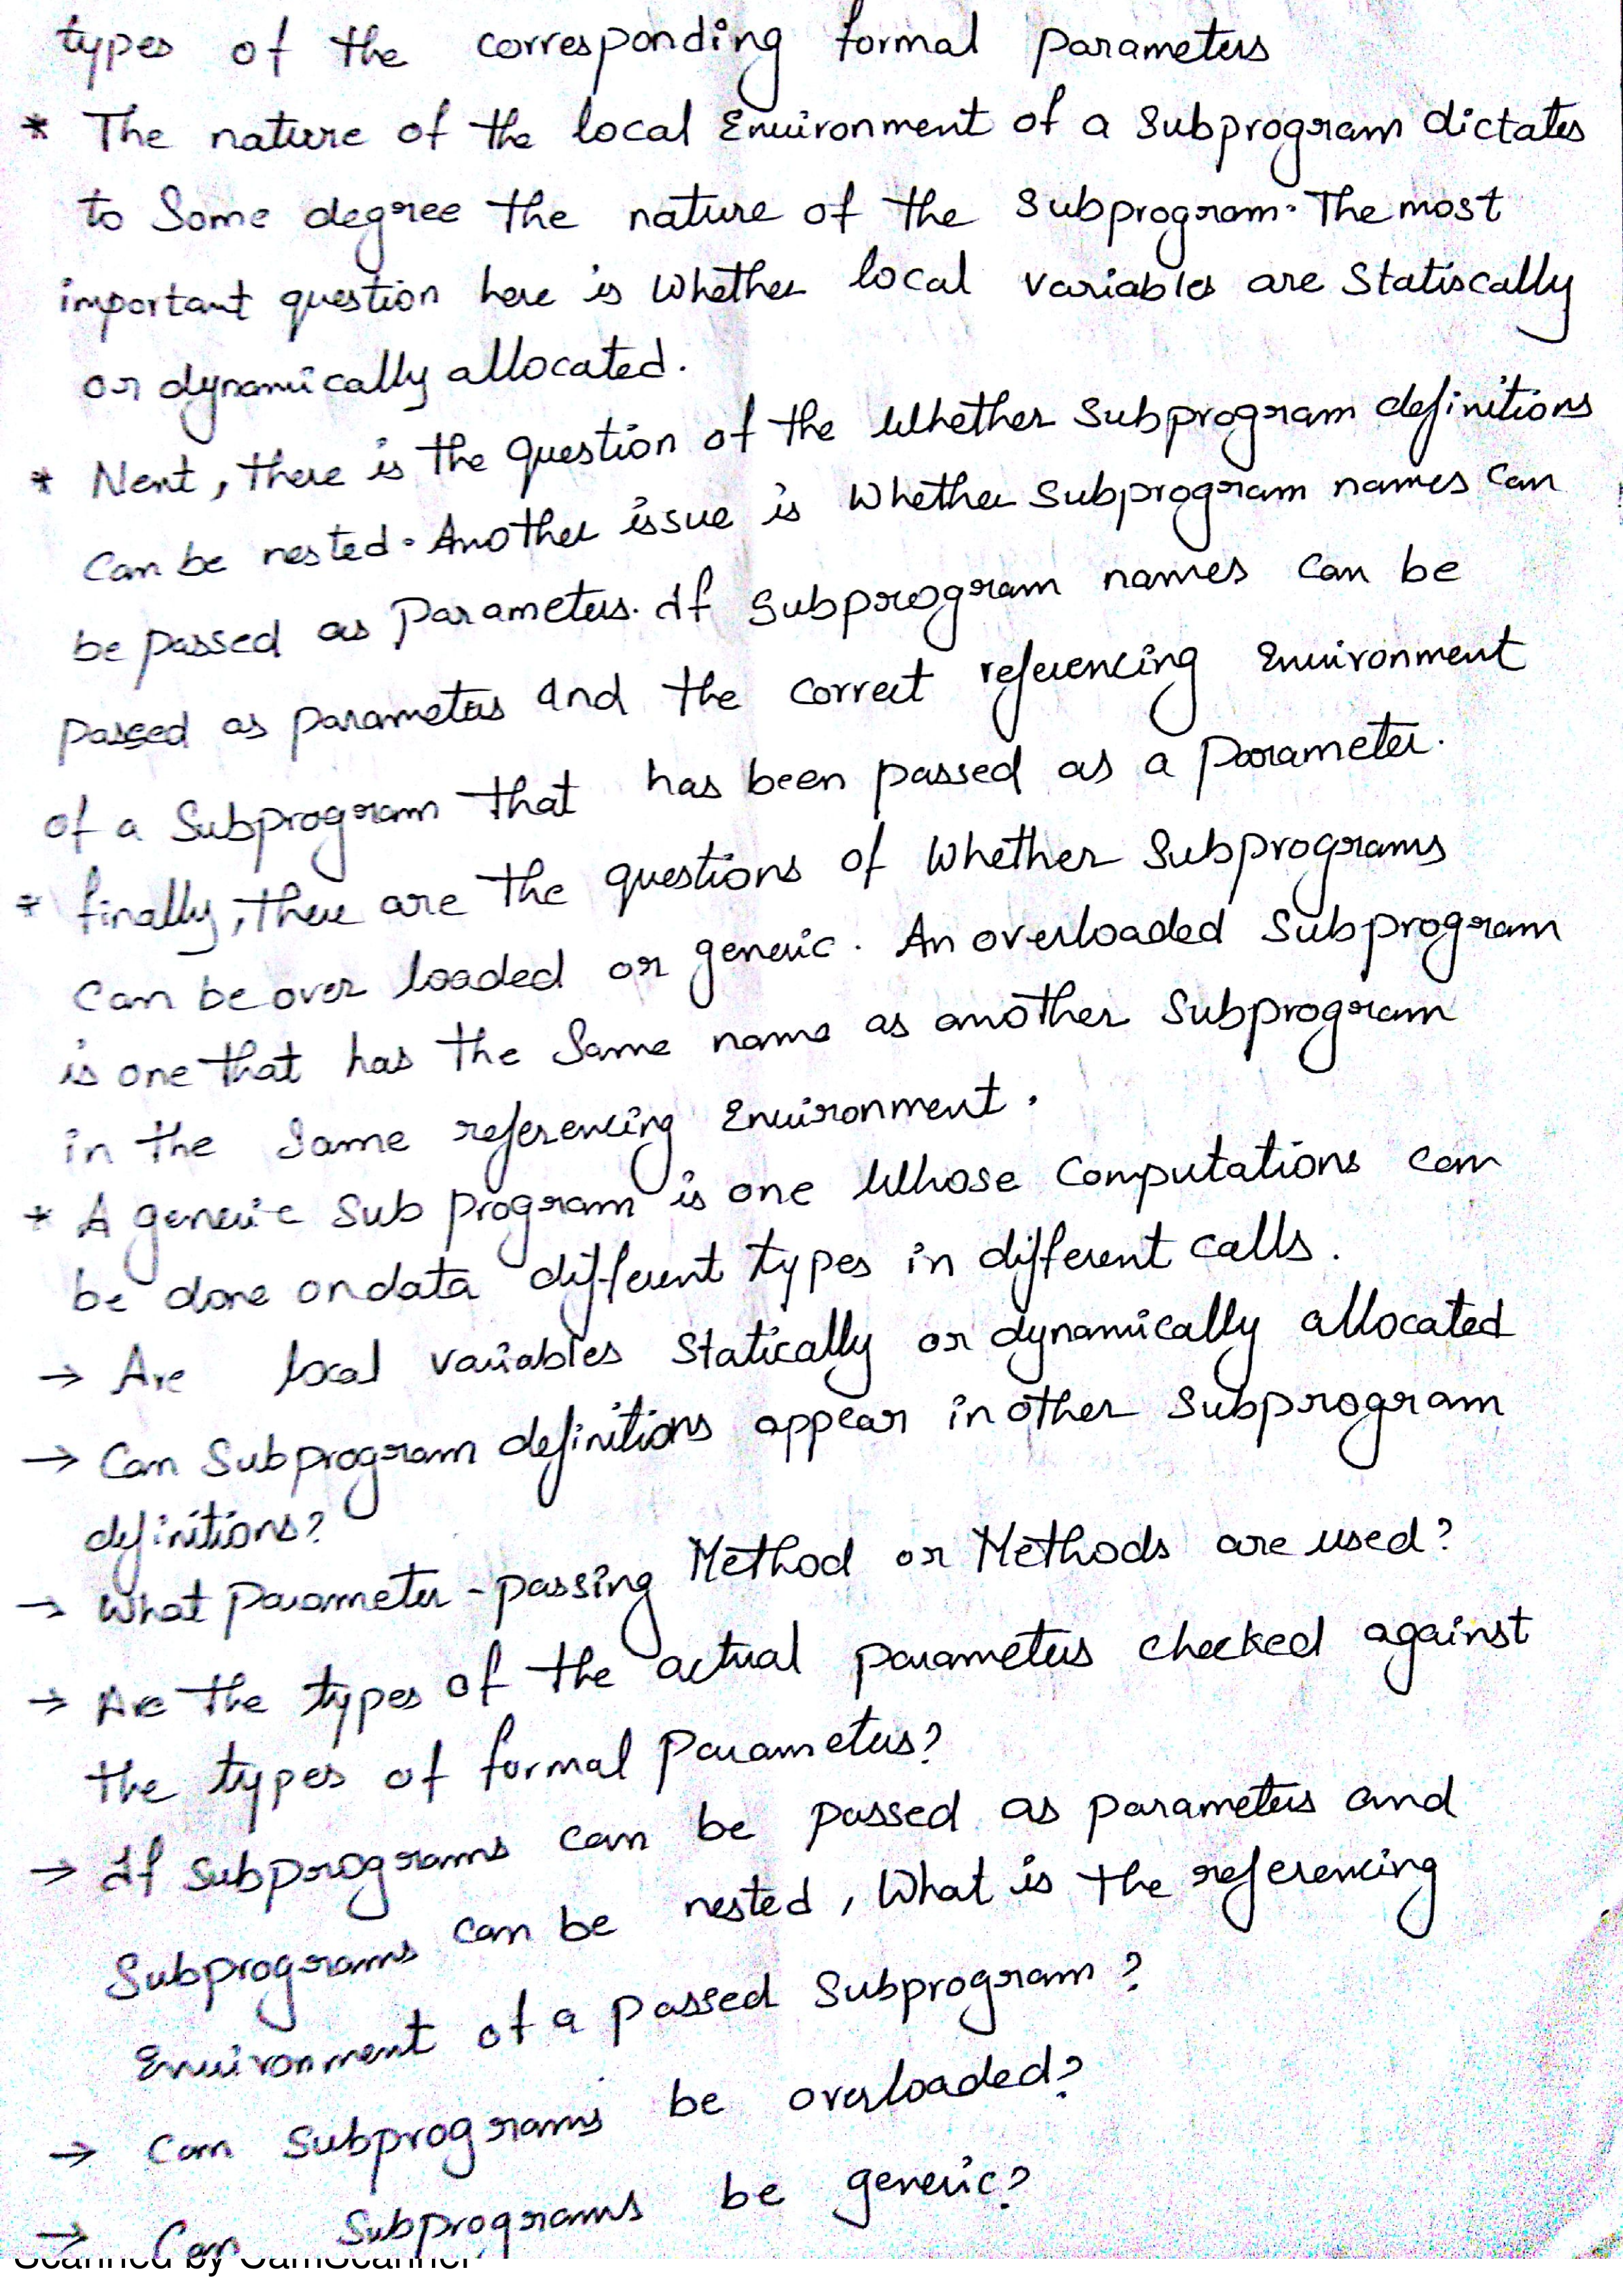 types of the corresponding formal parameters
* The nature of the local Environment of a Subprogram dictates
to Some degree the nature of the Subprogram. The most
important question here is whether local variables are Statiscally
or dynamically allocated.
* Next, there is the question of the whether Subprogram definitions
can be nested. Another issue is whether Subprogram names can
be passed as Parameters. If Subprogram names can be
passed as parameters and the correct referencing Environment
of a Subprogram that has been passed as a parameter.
* finally, there are the questions of whether Subprograms
can be over loaded or generic. An overloaded Subprogram
is one that has the Same name as another Subprogram
in the Same referencing Environment.
* A generic Sub program is one whose Computations can
be done on data different types in different calls.
→ Are local variables Statically or dynamically allocated
→ Can Subprogram definitions appear in other Subprogram
definitions?
→ What Parameter-passing Method or Methods are used?
→ Are the types of the actual parameters checked against
the types of formal Parameters?
→ If Subprograms can be passed as parameters and
Subprograms can be nested, What is the referencing
Environment of a passed Subprogram?
→ Can Subprograms be overloaded?
→ Can Subprograms be generic?
Scanned by CamScanner